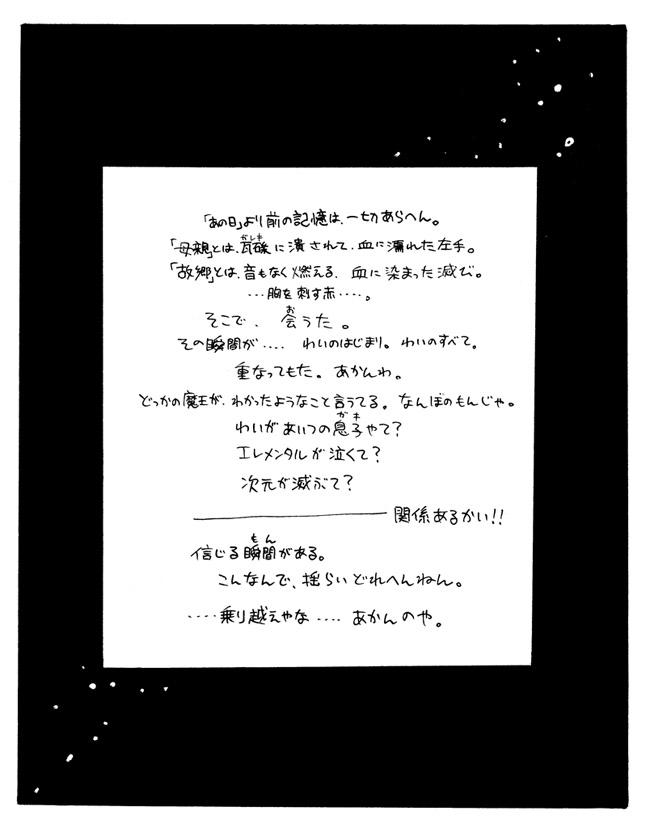 「あの日」より前の記憶は、一切あらへん。
「母親」とは、瓦礫に潰されて、血に濡れた左手。
「故郷」とは、音もなく燃える、血に染まった滅び。
…胸を刺す赤‥‥。
そこで、会うた。
その瞬間が‥‥ わいのはじまり。わいのすべて。
重なってもた。あかんわ。
どっかの魔王が、わかったようなこと言うてる。なんぼのもんじゃ。
わいがあいつの息子やて?
エレメンタルが泣くて?
次元が滅ぶて?
――――――関係あるかい!!
信じる瞬間がある。
こんなんで、揺らいどれへんねん。
‥‥乗り越えやな‥‥ あかんのや。